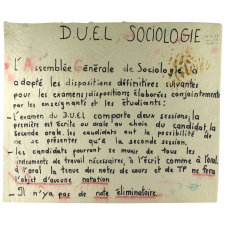 D.U.E.L SOCIOLOGIE
L'Assemblée Générale de Sociologie a
adopté les dispositions définitives suivantes
pour les examens, dispositions élaborées conjointement
par les enseignants et les étudiants :
- L'examen du D.U.E.L comporte deux sessions; la
première est écrite ou orale au choix du candidat, la
Seconde orale. les candidats ont la possibilité de
ne se présenter qu'à la seconde session.
- les candidats pourront se munir de tous les
instruments de travail nécessaires, à l'écrit comme à l'oral.
à l'oral la tenue des notes de cours et de TP ne fera
l'objet d'aucune notation
- Il n'y a pas de note éliminatoire.